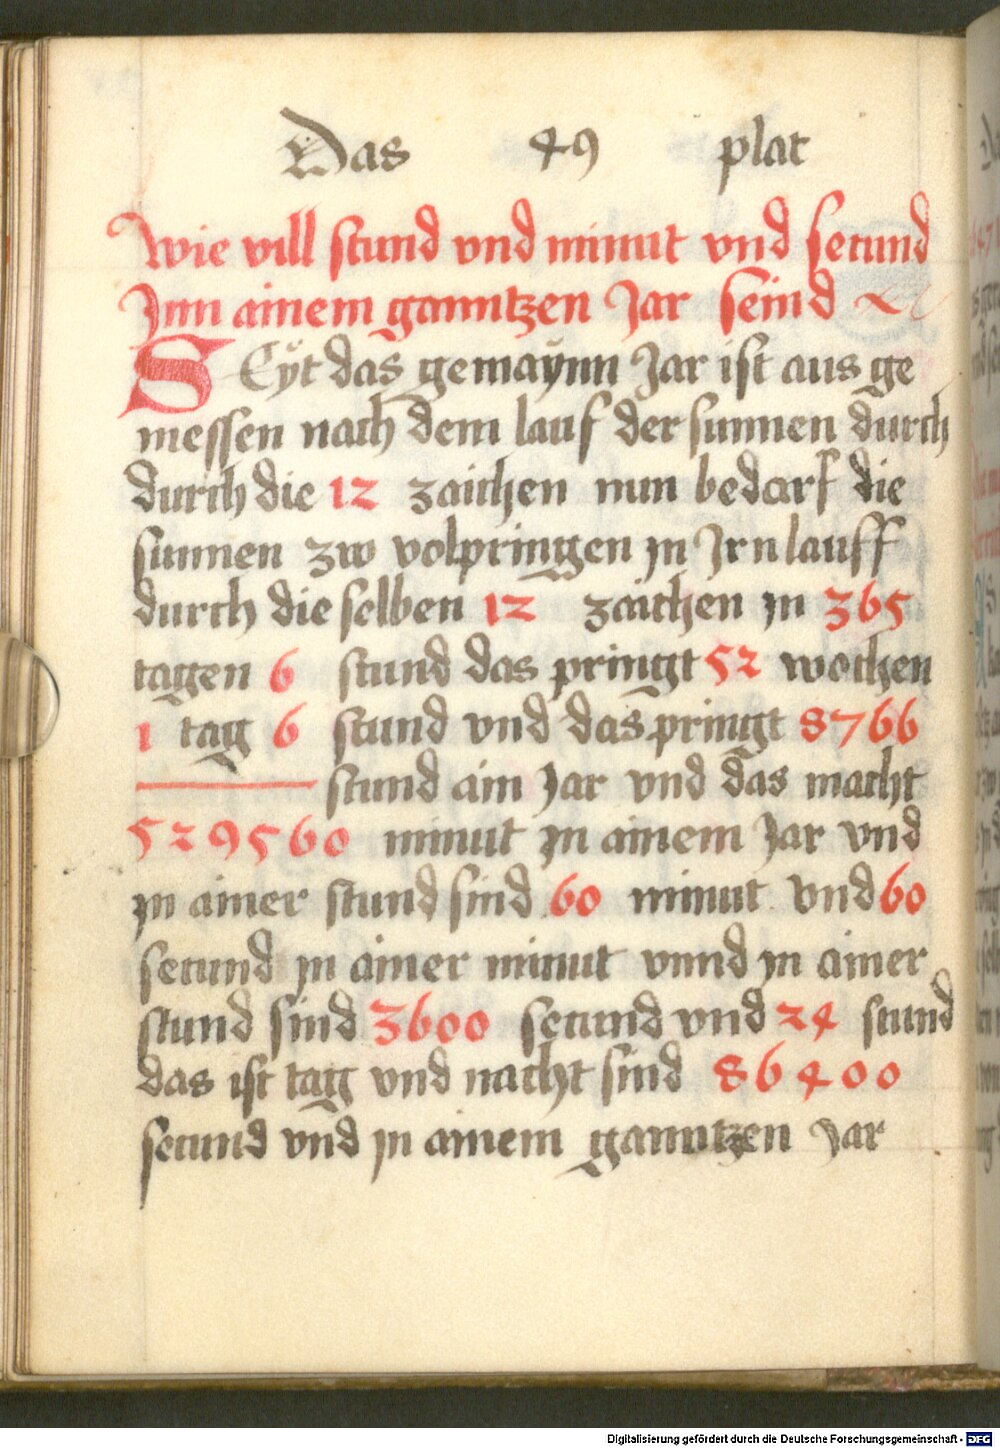 Das 49 plat
Wie vill stund vnd minut vnd secund
Jnn ainem ganntzen Jar seind
SEyt das gemaÿnn Jar ist aus ge
messen nach dem lauf der sunnen durch
durch die 12 zaichen nun bedarf die
sunnen zw volpringen jn Jrn lauff
durch die selben 12 zaichen jn 365
tagen 6 stund das pringt 52 wochen
1 tag 6 stund vnd das pringt 8766
stund ain jar vnd das macht
529560 minut jn ainem Jar vnd
jn ainer stund sind 60 minut vnd 60
secund jn ainer minut vnnd jn ainer
stund sind 3600 secund vnd 24 stund
das ist tag vnd nacht sind 86400
secund vnd jn ainem ganntzen Jar
Digitalisierung gefördert durch die Deutsche Forschungsgemeinschaft - DFG